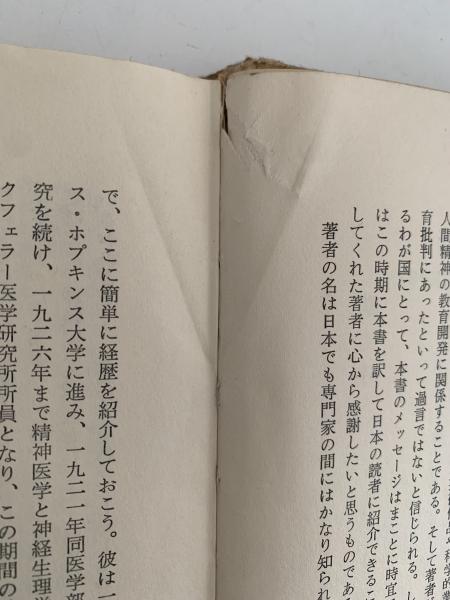 人間精神の教育開発に関係することである。そして著者
育批判にあったといって過言ではないと信じられる。し
るわが国にとって、本書のメッセージはまことに時宜
はこの時期に本書を訳して日本の読者に紹介できるこ
してくれた著者に心から感謝したいと思うものであ
著者の名は日本でも専門家の間にはかなり知られ
で、ここに簡単に経歴を紹介しておこう。彼は一
ス・ホプキンス大学に進み、一九二一年同医学部
究を続け、一九二六年まで精神医学と神経生理学
クフェラー医学研究所所員となり、この期間の